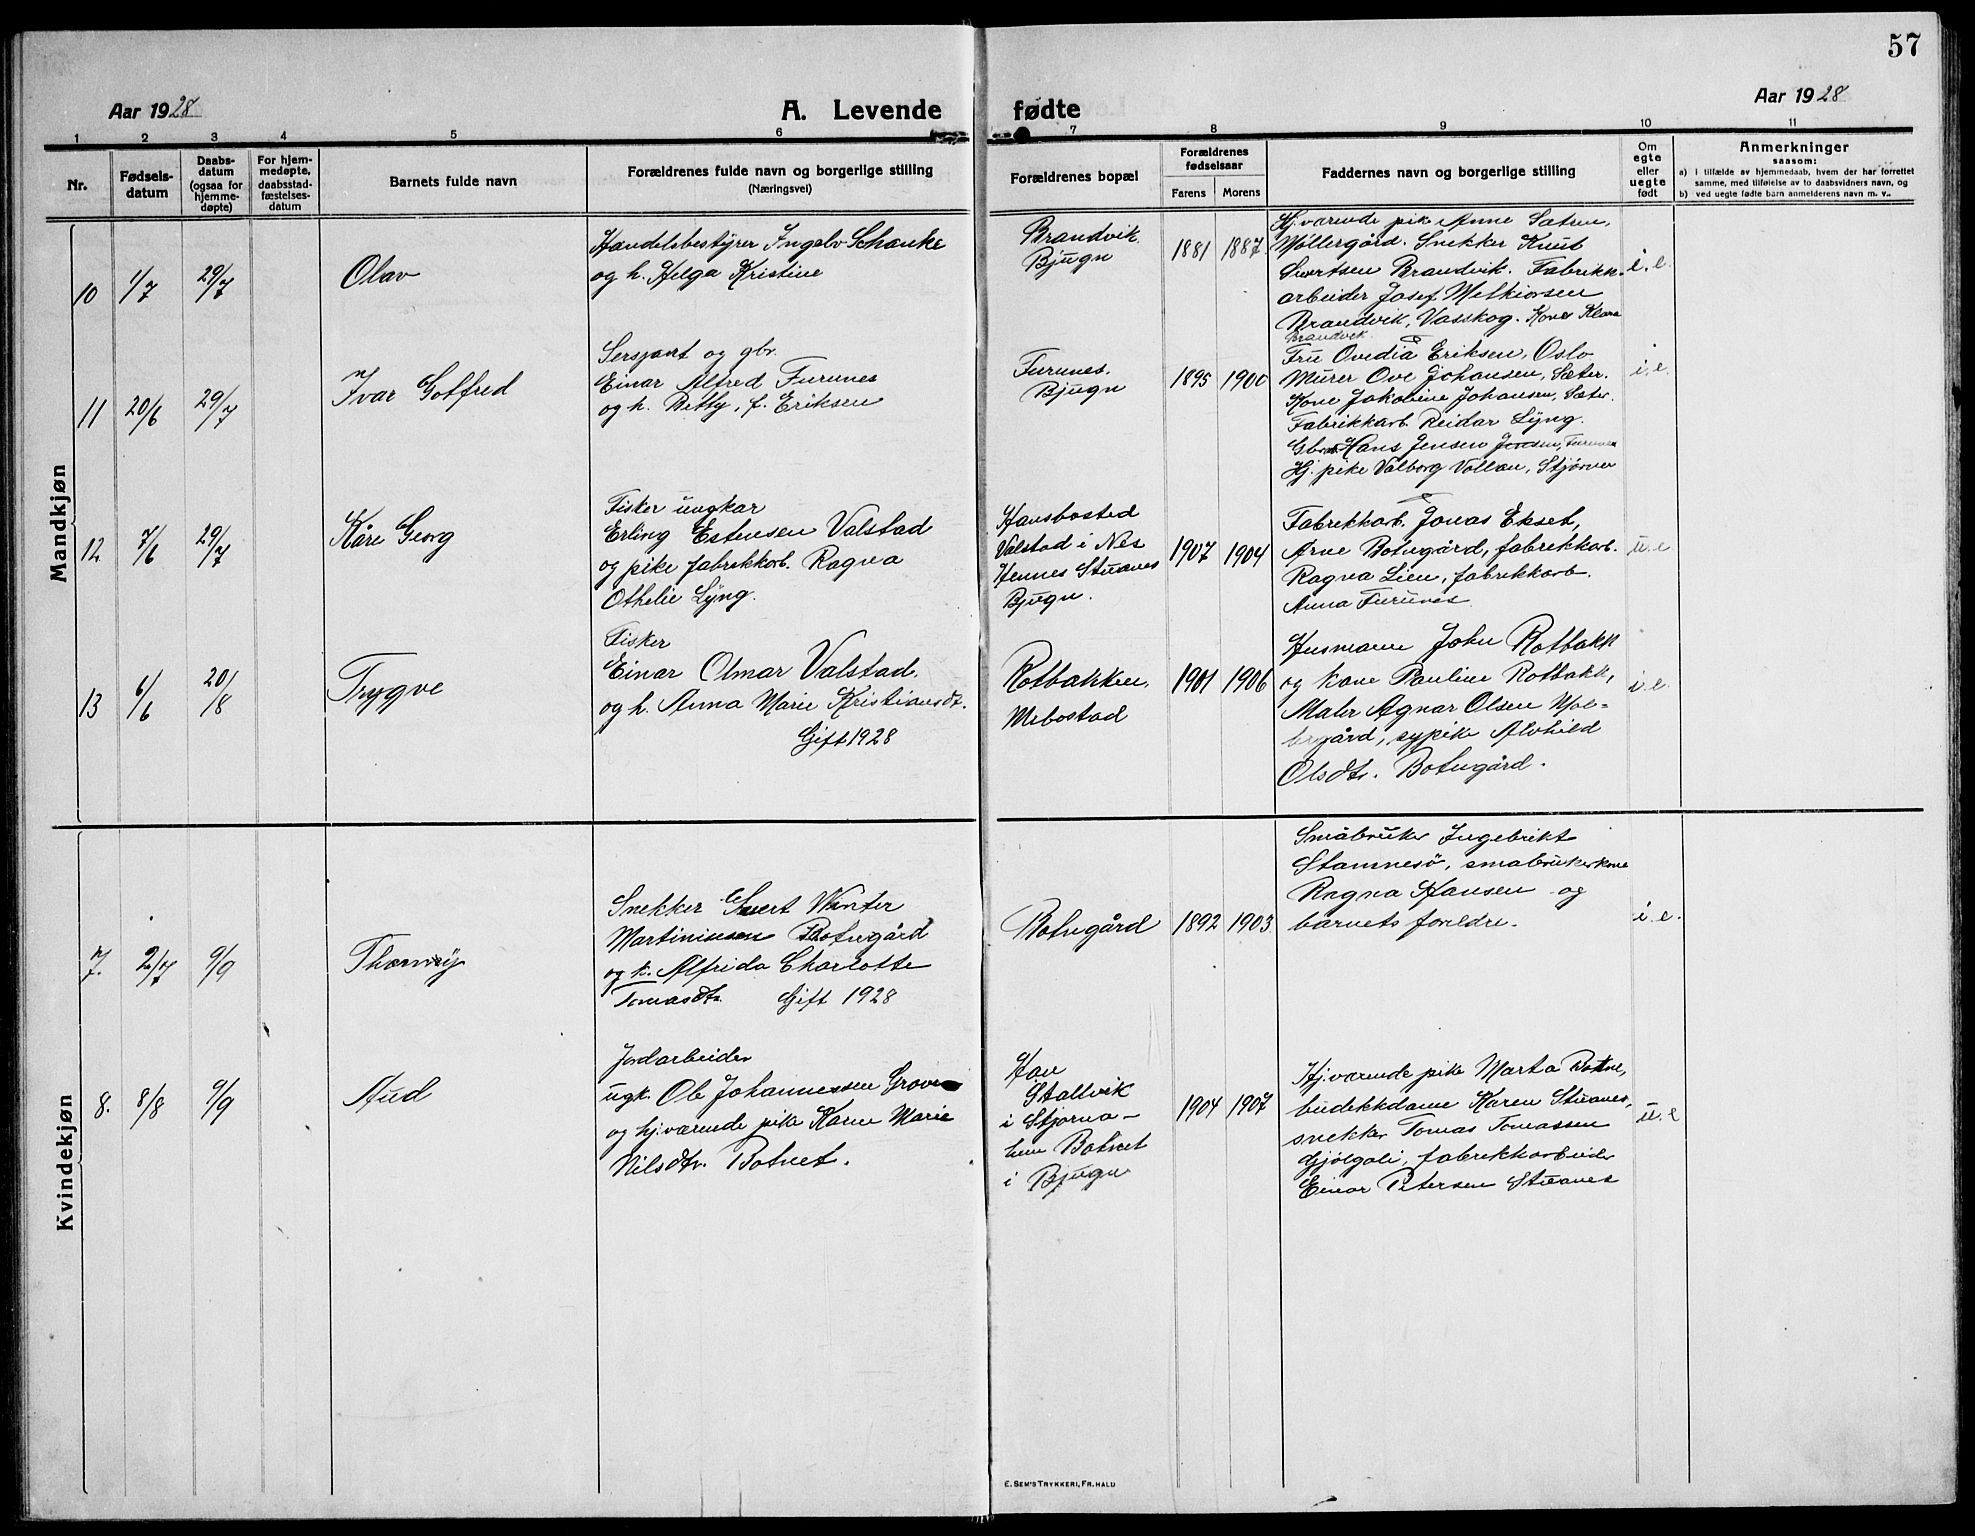 57
Aar 1928
A. Levende fødte
Aar 1928
1 2 3 4 5 6 7 8 9 10 11
Nr.
Fødsels-
datum
Daabs-
datum
(ogsaa for
hjemme-
døpte)
For hjem-
medøpte,
daabsstad-
fæstelses-
datum
Barnets fulde navn
Forældrenes fulde navn og borgerlige stilling
(Næringsvei)
Forældrenes bopæl
Forældrenes
fødselsaar
Farens Morens
Faddernes navn og borgerlige stilling
Om
egte
eller
uegte
født
Anmerkninger
saasom:
a) i tilfælde av hjemmedaab, hvem der har forrettet
samme, med tilføielse av to daabsvidners navn, og
b) ved uegte fødte barn anmelderens navn m. v..
Mandkjøn
10 1/7 29/7
Olav
Handelsbestyrer Ingolv Schanke
og h. Helga Kristine
Brandvik.
Bjugn
1881 1887.
Hj.værende pike Anne Sætren,
Møllergård. Snekker Knut
Sivertsen Brandvik. Fabrikk-
arbeider Josef Melkiorsen
Brandvik, Vasskog. Kone Klara
Brandvik
i. e.
11 20/6 29/7
Ivar Gotfred
Sersjant og gbr.
Einar Alfred Furunes
og h. Betty, f. Eriksen
Furunes.
Bjugn
1895 1900
Fru Ovedia Eriksen, Oslo
Murer Ove Johansen, Sæter.
Kone Jakobine Johansen, Sæter.
Fabrikkarb. Reidar Lyng.
Gbr. Hans Jensen Furunes
Hj. pike Valborg Vollan, Stjørna
i. e.
12 7/6 29/7
Kåre Georg
Fisker ungkar
Erling Estensen Valstad
og pike fabrikkarb. Ragna
Othelie Lyng.
Hansbosted
Valstad i Nes
Hennes Stuanes
Bjugn.
1907 1904
Fabrikkarb. Jonas Ekset,
Arne Botngård, fabrikkarb.
Ragna Lien, fabrikkarb.
Anna Furunes
u. e
13 6/6 20/8
Trygve
Fisker
Einar Olmar Valstad.
og h. Anna Marie Kristiansdt.
Gift 1928
Rotbakken.
Mebostad
1901 1906
Husmann John Rotbakk
og kone Pauline Rotbakk,
Maler Agnar Olsen
sypike Alvhild
Olsdtr. Botngård.
i. e.
Kvindekjøn
7. 2/7 9/9
Snekker Sivert Winter
Martiniusen Botngård
og h. Alfrida Charlotte
Tomasdtr. Gift 1928
Botngård
1892 1903
Småbruker Ingebrikt
Stamnesø, småbrukerkone
Ragna Hansen og
barnets foreldre.
i. e.
8. 8/8 9/9
Aud
Jordarbeider
ugk. Ole Johannessen
og hj.værende pike Karen Marie
Nilsdtr. Botnet.
Han
Stallvik
i Stjørna -
hun Botnet
i Bjugn
1904 1907
Hj.værende pike Marta Botne,
budeikdame Karen Stuanes,
snekker Tomas Tomassen
Gjølgali, fabrikkarbeider
Einar Petersen Stuanes
u. e
E. SEM'S TRYKKERI, FR.HALD